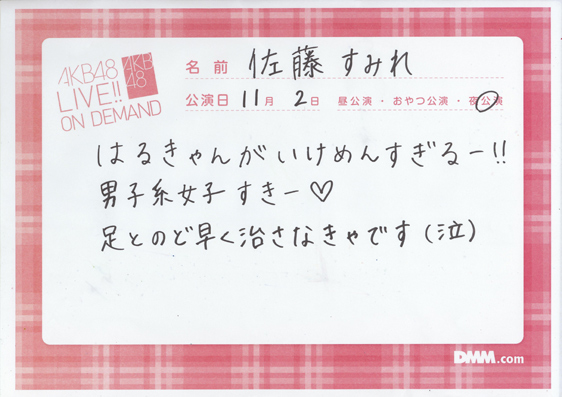 AKB48
LIVE!!
ON DEMAND
AKB
48
名前 佐藤すみれ
公演日 11月 2日 昼公演・おやつ公演・夜公演
はるきゃんがいけめんすぎるー!!
男子系女子すきー♡
足とのど早く治さなきゃです(泣)
DMM.com